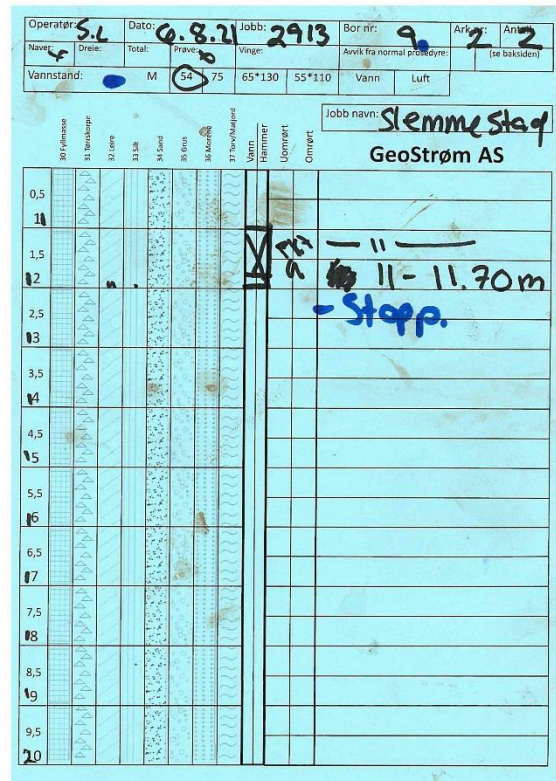 Operatør: S.L Dato: 6.8.21 Jobb: 2913 Bor nr: 9. Ark nr: 2 Antall 2
Naver: Dreie: Total: Prøve: Vinge: Avvik fra normal prosedyre: (se baksiden)
Vannstand: M 54 75 65*130 55*110 Vann Luft
Jobb navn: Slemmestad
GeoStrøm AS
30 Fyllmasse
31 Tørrskorpe
32 Leire
33 Silt
34 Sand
35 Grus
36 Morene
37 Torv/Matjord
Vann
Hammer
Uomrørt
Omrørt
0,5
11
1,5
— 11 —
12
11 - 11.70 m
2,5
- Stopp.
13
3,5
14
4,5
15
5,5
16
6,5
17
7,5
18
8,5
19
9,5
20